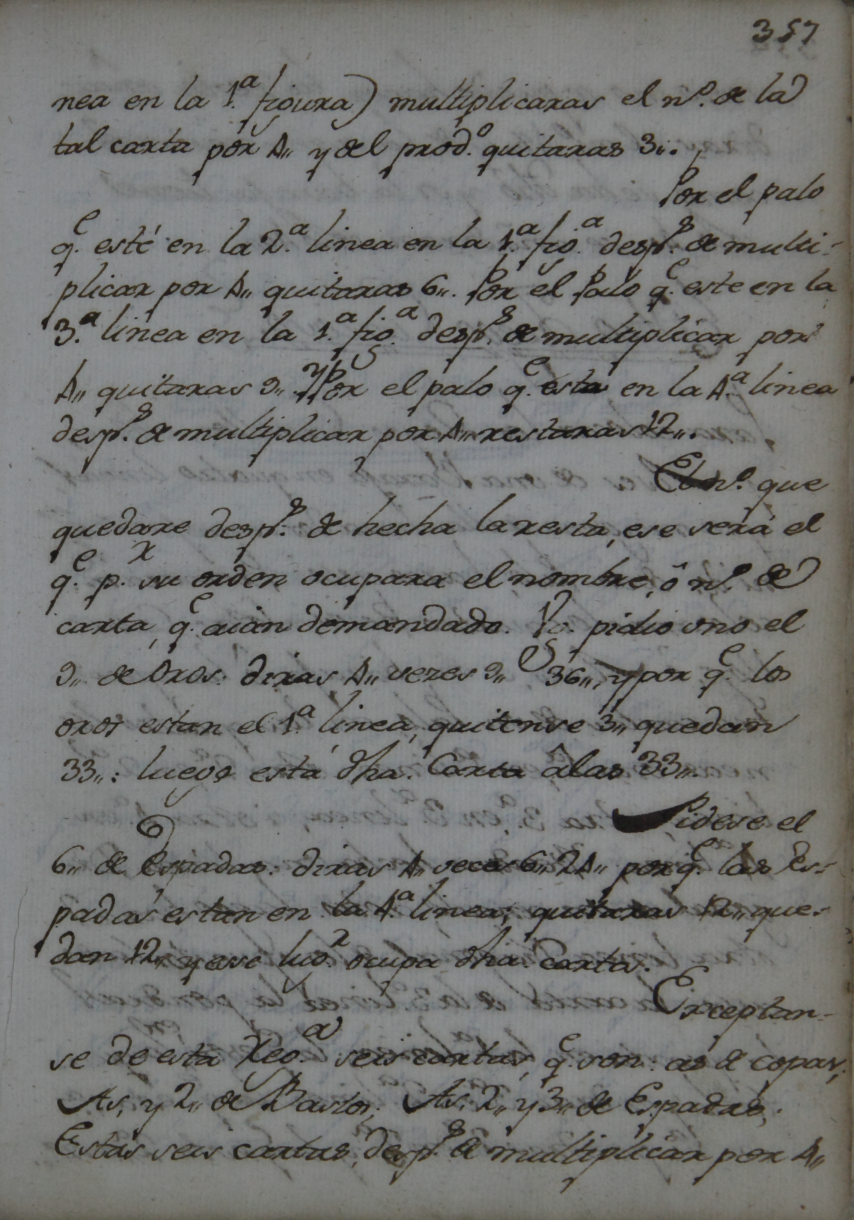 357
nea en la 1.ª figura) multiplicaras el n.º de la
tal carta por 4,, y del prod.º quitaras 3,,.
Por el palo
q.e esté en la 2.ª linea en la 1.ª fig.ª desp.s de multi-
plicar por 4,, quitaras 6,,. Por el Palo q.e este en la
3.ª linea en la 1.ª fig.ª desp.s de multiplicar por
4,, quitaras 9,, y Por el palo q.e esta en la 4.ª linea
desp.s de multiplicar por 4,, restaras 12,,.
El n.º que
quedare desp.s de hecha la resta, ese será el
q.e p.r su orden ocupara el nombre, ô n.º de
carta, q.e aian demandado. Vg. pidio uno el
9,, de Oros: diras 4,, vezes 9,, 36,, y por q.e los
oros estan el 1.ª linea, quitense 3,, quedan
33,,: luego está dha. Carta â las 33,,.
Pidese el
6,, de Espadas: diras 4,, veces 6,, 24,, porq.e las Es-
padas estan en la 4.ª linea; quitaras 12,, que-
dan 12,, y ese lug.r ocupa dha. carta.
Exceptan-
se de esta Reg.ª seis cartas, q.e son: as de copas;
As, y 2,, de Bastos; As, 2,, y 3,, de Espadas;
Estas seis cartas, desp.s de multiplicar por 4,,